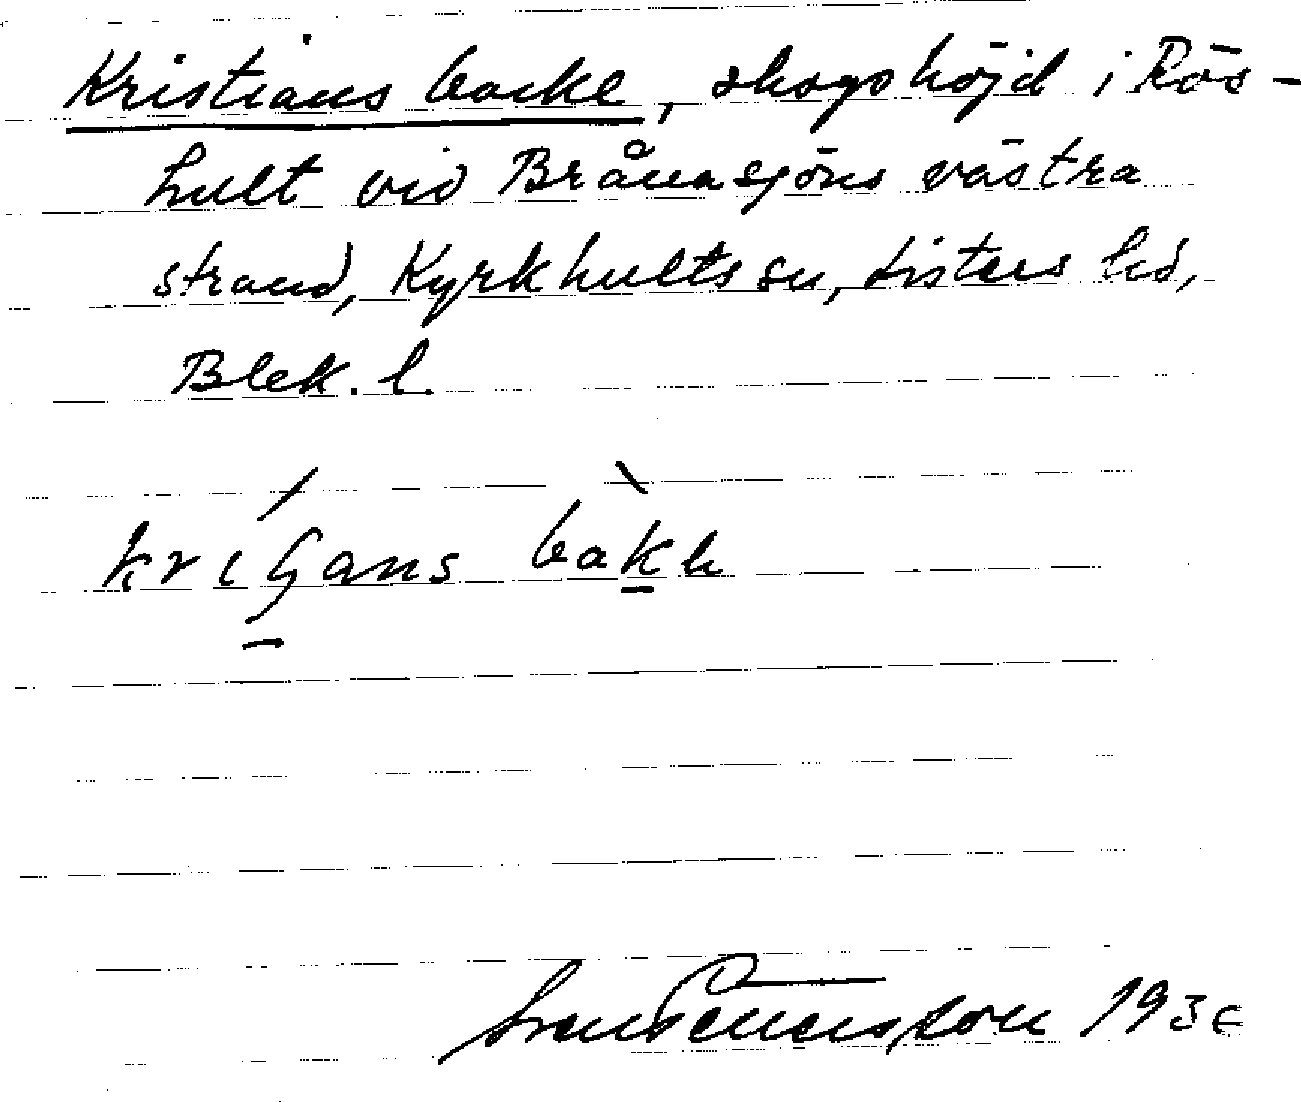 Kristians backe, skogshöjd i Rös-
hult vid Brånasjöns västra
strand, Kyrkhults sn, Listers hd,
Blek. l.
bakk
1936